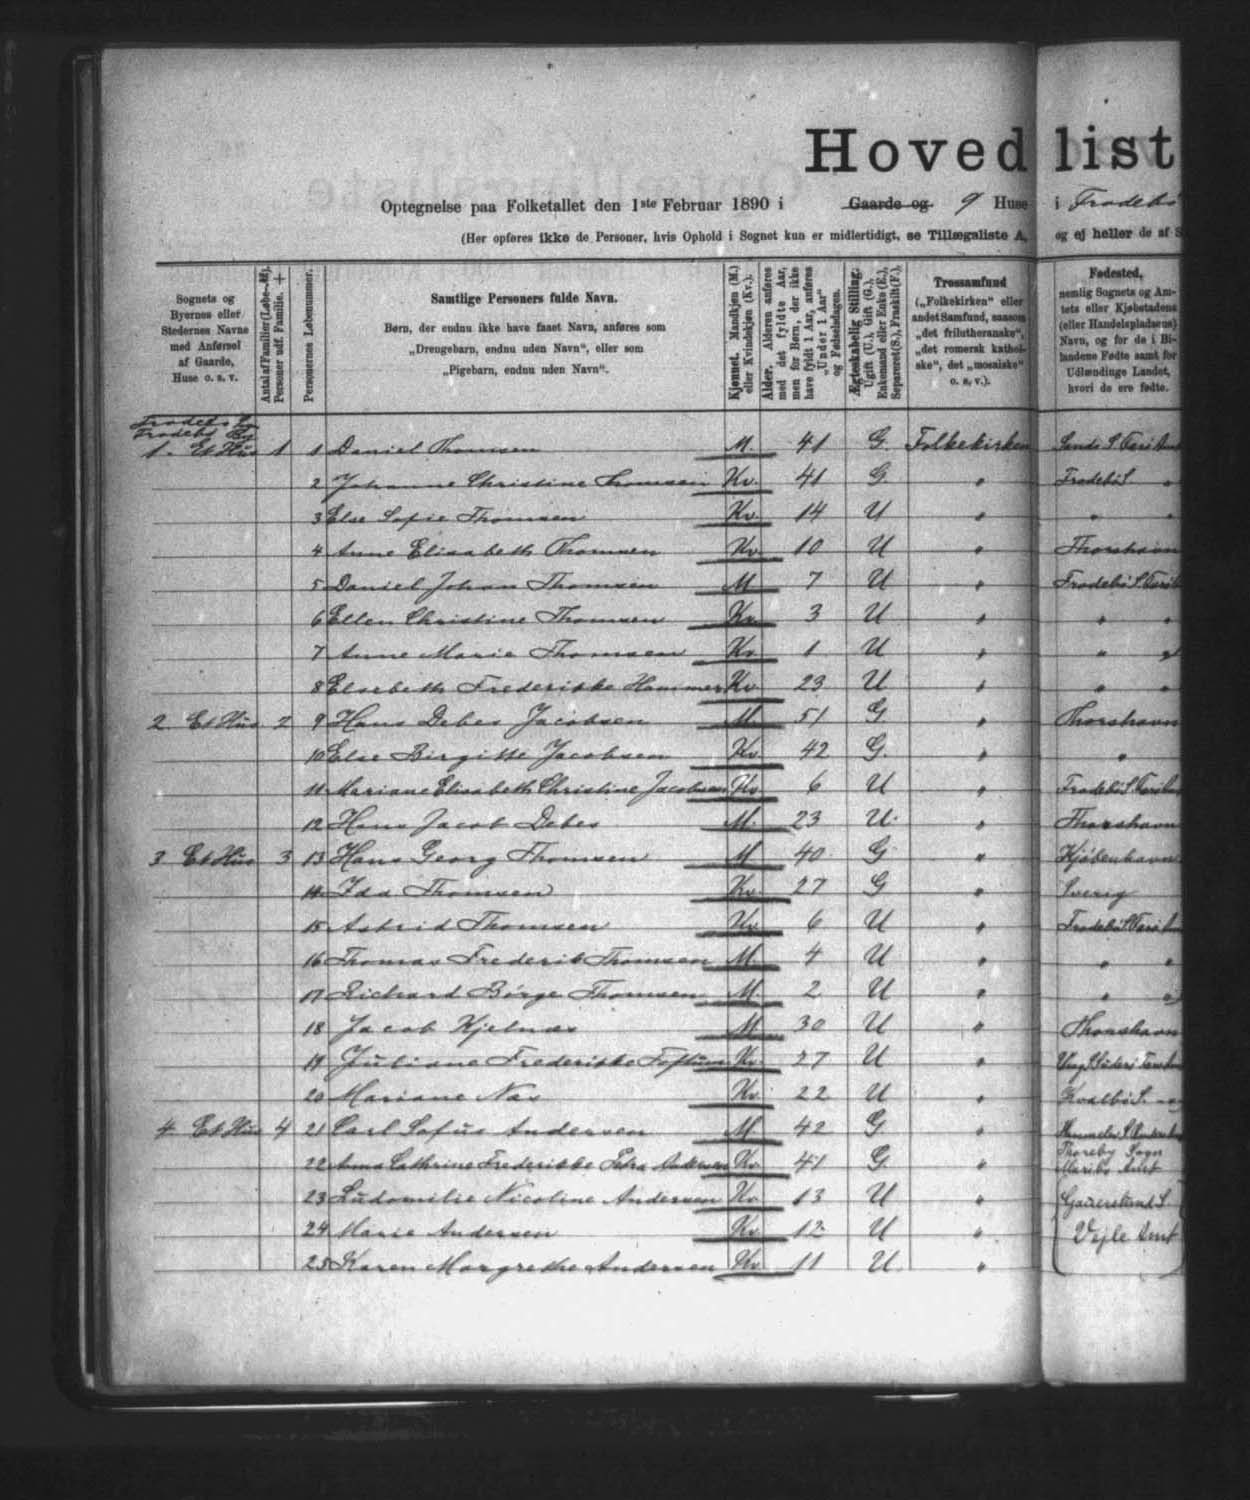 Hovedlist
Optegnelse paa Folketallet den 1ste Februar 1890 i Gaarde og 9 Huse i Frodebö
(Her opføres ikke de Personer, hvis Ophold i Sognet kun er midlertidigt, se Tillægsliste A, og ej heller de af S
Sognets og Byernes eller Stedernes Navne med Anførsel af Gaarde, Huse o. s. v.
Antal af Familier (Løbe-№).
Personer udf. Familie. +
Personernes Løbenummer.
Samtlige Personers fulde Navn.
Børn, der endnu ikke have faaet Navn, anføres som
„Drengebarn, endnu uden Navn", eller som
„Pigebarn, endnu uden Navn".
Kjønnet. Mandkjøn (M.) eller Kvindekjøn (Kv.).
Alder. Alderen anføres med det fyldte Aar, men for Børn, der ikke have fyldt 1 Aar, anføres „Under 1 Aar" og Fødselsdagen.
Ægteskabelig Stilling. Ugift (U.), Gift (G.), Enkemand eller Enke (E.), Separeret (S.), Fraskilt (F.).
Trossamfund
(„Folkekirken" eller andet Samfund, saasom „det frilutheranske", „det romersk katholske", det „mosaiske" o. s. v.).
Fødested,
nemlig Sognets og Amtets eller Kjøbstadens (eller Handelspladsens) Navn, og for de i Bilandene Fødte samt for Udlændinge Landet, hvori de ere fødte.
Frodebö By
1. Et Hus 1 1 Daniel Thomsen M. 41 G. Folkekirken Sands S. Færö Amt
2 Johanne Christine Thomsen Kv. 41 G. " Frodebö S. "
3 Else Sofie Thomsen Kv. 14 U " " "
4 Anne Elisabeth Thomsen Kv. 10 U " Thorshavn
5 Daniel Johan Thomsen M 7 U " Frodebö S. Færö
6 Ellen Christine Thomsen Kv. 3 U " " "
7 Anne Marie Thomsen Kv. 1 U " " "
8 Elsebeth Frederikke Hammer Kv. 23 U " " "
2 Et Hus 2 9 Hans Debes Jacobsen M. 51 G. " Thorshavn
10 Else Birgitte Jacobsen Kv. 42 G. " "
11 Mariane Elisabeth Christine Jacobsen Kv. 6 U " Frodebö S. Færö
12 Hans Jacob Debes M. 23 U. " Thorshavn
3 Et Hus 3 13 Hans Georg Thomsen M 40 G " Kjöbenhavn
14 Ida Thomsen Kv. 27 G " Sverig
15 Astrid Thomsen Kv. 6 U " Frodebö S. Færö
16 Thomas Frederik Thomsen M. 4 U " " "
17 Richard Börge Thomsen M. 2 U " " "
18 Jacob Kjelnæs M 30 U " Thorshavn
19 Juliane Frederikke Kv. 27 U "
20 Mariane Kv. 22 U " Kvalbö S. "
4 Et Hus 4 21 Carl Sofus Andersen M 42 G "
22 Anna Cathrine Frederikke Petra Andersen Kv. 41 G. " Thoreby Sogn Maribo Amt
23 Ludomilie Nicoline Andersen Kv 13 U "
24 Marie Andersen Kv. 12 U " Vejle Amt
25 Karen Margrethe Andersen Kv. 11 U. "